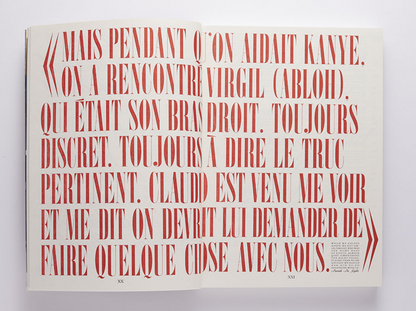 «MAIS PENDANT QU'ON AIDAIT KANYE.
ON A RENCONTRÉ VIRGIL (ABLOH).
QUI ÉTAIT SON BRAS DROIT. TOUJOURS
DISCRET. TOUJOURS À DIRE LE TRUC
PERTINENT. CLAUDE EST VENU ME VOIR
ET ME DIT ON DEVRAIT LUI DEMANDER DE
FAIRE QUELQUE CHOSE AVEC NOUS.»